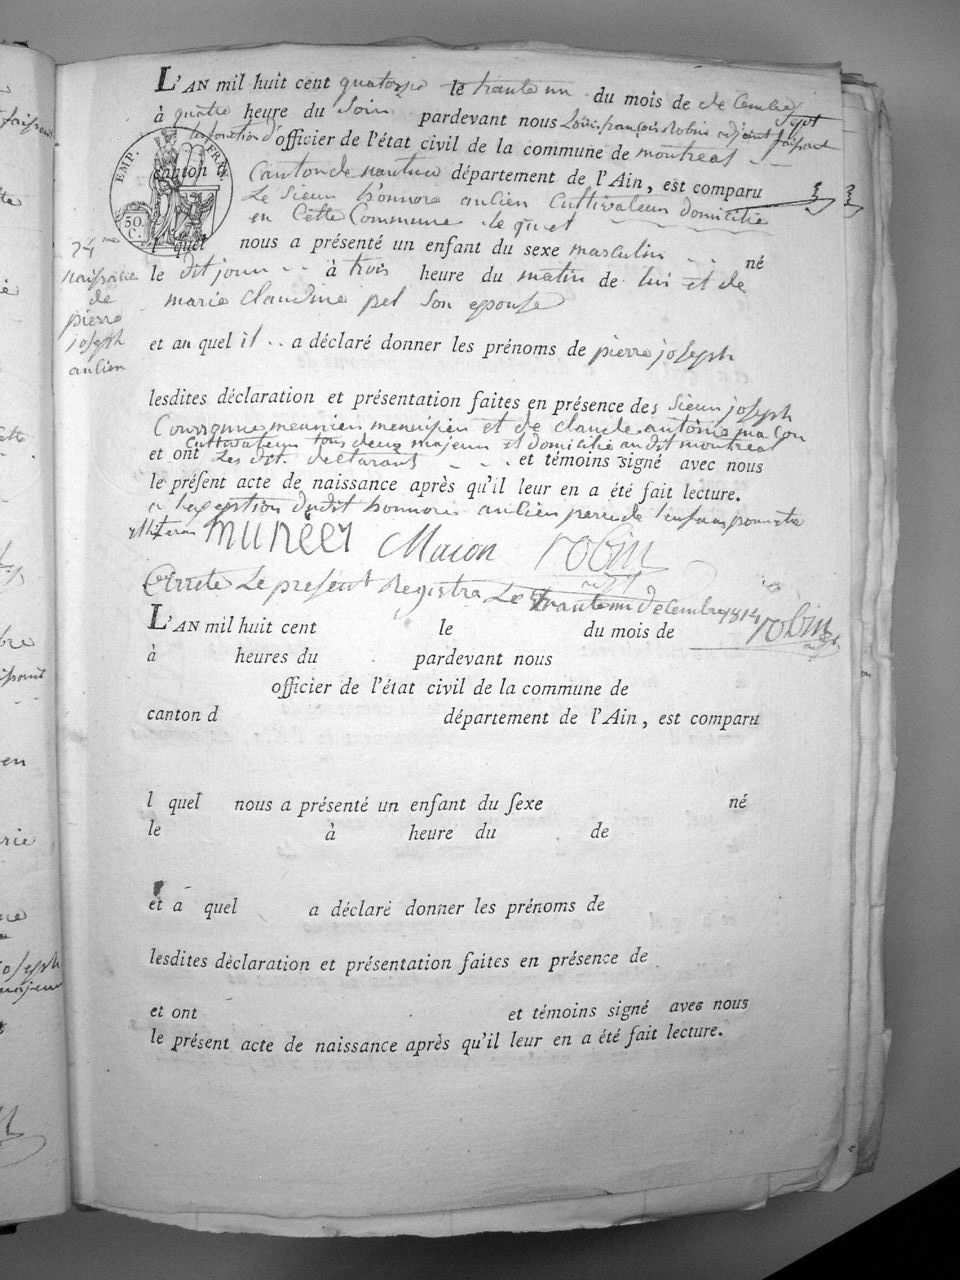 L'AN mil huit cent quatorze le trante un du mois de decembre
à quatre heure du Soir pardevant nous Louis françois Robin adjoint faisant
les fonction d'officier de l'état civil de la commune de montreal
EMP. FRAN.
50 C.
canton Canton de nantua département de l'Ain, est comparu
Le Sieur honnore ancien Cultivateur domicilie
en Cette Commune le quel
l quel nous a présenté un enfant du sexe masculin né
le dit jour à trois heure du matin de lui et de
marie claudine pel son epouse
74
naissance
de
pierre
joseph
ancien
et au quel il a déclaré donner les prénoms de pierre joseph
lesdites déclaration et présentation faites en présence des Sieur joseph
meunier et de claude antoine maçon
Cultivateur tous deux majeur et domicilié au dit montreal
et ont Les dit declarant et témoins signé avec nous
le présent acte de naissance après qu'il leur en a été fait lecture.
a l'exception dudit honnore ancien pere de l'enfant pour etre
illiteré munier Macon robin
adjt
Arrete Le present Registre Le trante un decembre 1814 robin
adjt
L'AN mil huit cent le du mois de
à heures du pardevant nous
officier de l'état civil de la commune de
canton d département de l'Ain, est comparu
l quel nous a présenté un enfant du sexe né
le à heure du de
et a quel a déclaré donner les prénoms de
lesdites déclaration et présentation faites en présence de
et ont et témoins signé avec nous
le présent acte de naissance après qu'il leur en a été fait lecture.